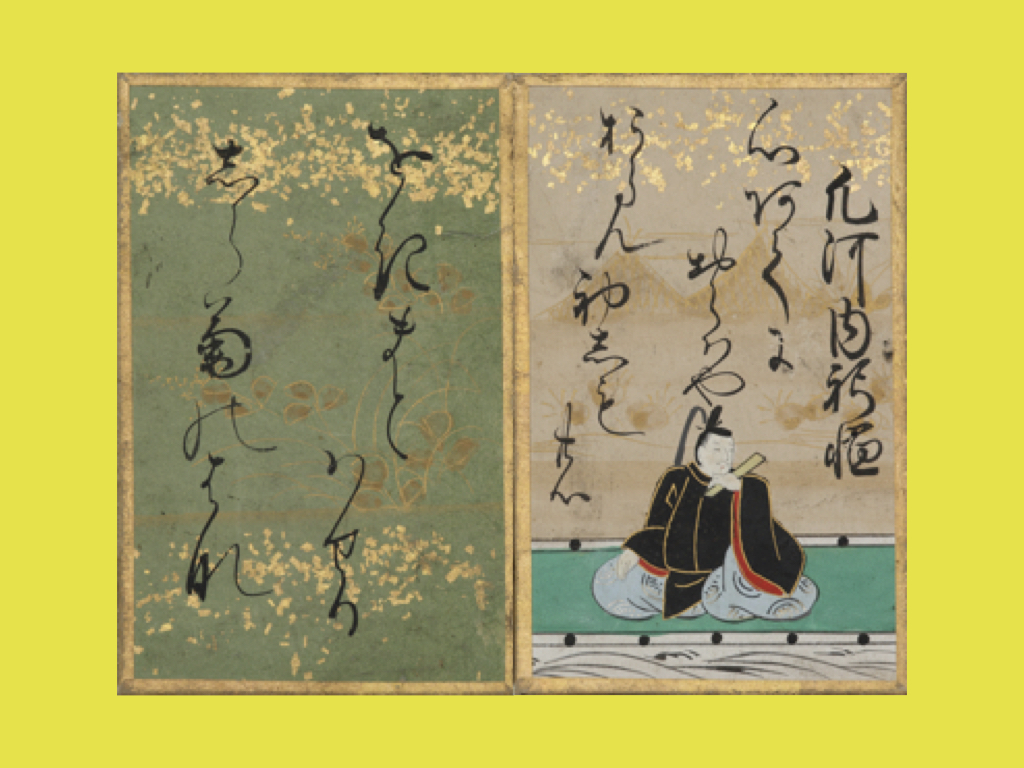 凡河内躬恒
心あてに
おらはや
おらん初しも
の
をきまと
はせる
しら菊のはな